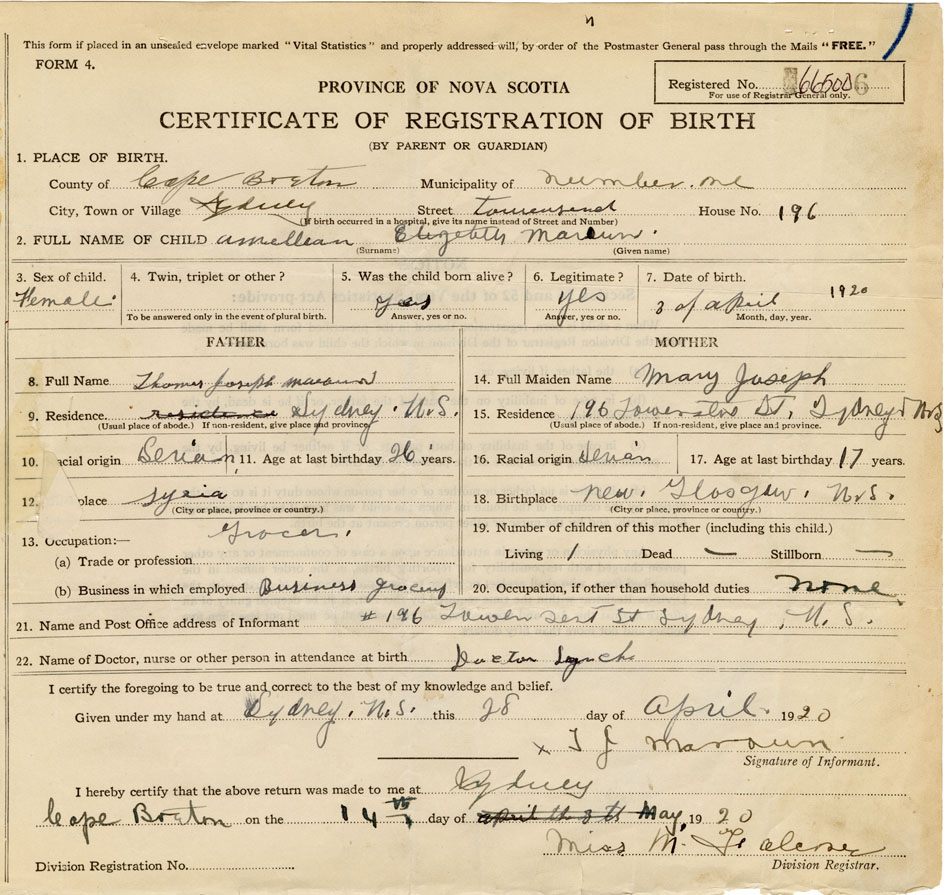 This form if placed in an unsealed envelope marked "Vital Statistics" and properly addressed will, by order of the Postmaster General pass through the Mails "FREE."
FORM 4.
Registered No. 66500 6
For use of Registrar General only.
PROVINCE OF NOVA SCOTIA
CERTIFICATE OF REGISTRATION OF BIRTH
(BY PARENT OR GUARDIAN)
1. PLACE OF BIRTH.
County of Cape Breton Municipality of number one
City, Town or Village Sydney Street townsend House No. 196
(If birth occurred in a hospital, give its name instead of Street and Number)
2. FULL NAME OF CHILD Elizabeth Maroun.
(Surname) (Given name)
3. Sex of child. 4. Twin, triplet or other? 5. Was the child born alive? 6. Legitimate? 7. Date of birth.
Female. yes yes 3 of april 1920
To be answered only in the event of plural birth. Answer, yes or no. Answer, yes or no. Month, day, year.
FATHER MOTHER
8. Full Name Thomas Joseph maroun 14. Full Maiden Name Mary Joseph
9. Residence. residence Sydney. N.S. 15. Residence 196 St, Sydney N.S
(Usual place of abode.) If non-resident, give place and province (Usual place of abode.) If non-resident, give place and province.
10. acial origin Serian 11. Age at last birthday 26 years. 16. Racial origin Serian 17. Age at last birthday 17 years.
12. place syria 18. Birthplace new. Glasgow. N.S.
(City or place, province or country.) (City or place, province or country.)
13. Occupation:— Grocer. 19. Number of children of this mother (including this child.)
(a) Trade or profession Living 1 Dead — Stillborn —
(b) Business in which employed Business grocery 20. Occupation, if other than household duties none
21. Name and Post Office address of Informant # 196 St Sydney, N.S.
22. Name of Doctor, nurse or other person in attendance at birth Doctor Lynch
I certify the foregoing to be true and correct to the best of my knowledge and belief.
Given under my hand at Sydney, N.S. this 28 day of april 1920
x T J maroun
Signature of Informant.
I hereby certify that the above return was made to me at Sydney
Cape Breton on the 14th day of april th 8th May, 1920
Miss M.
Division Registration No. Division Registrar.